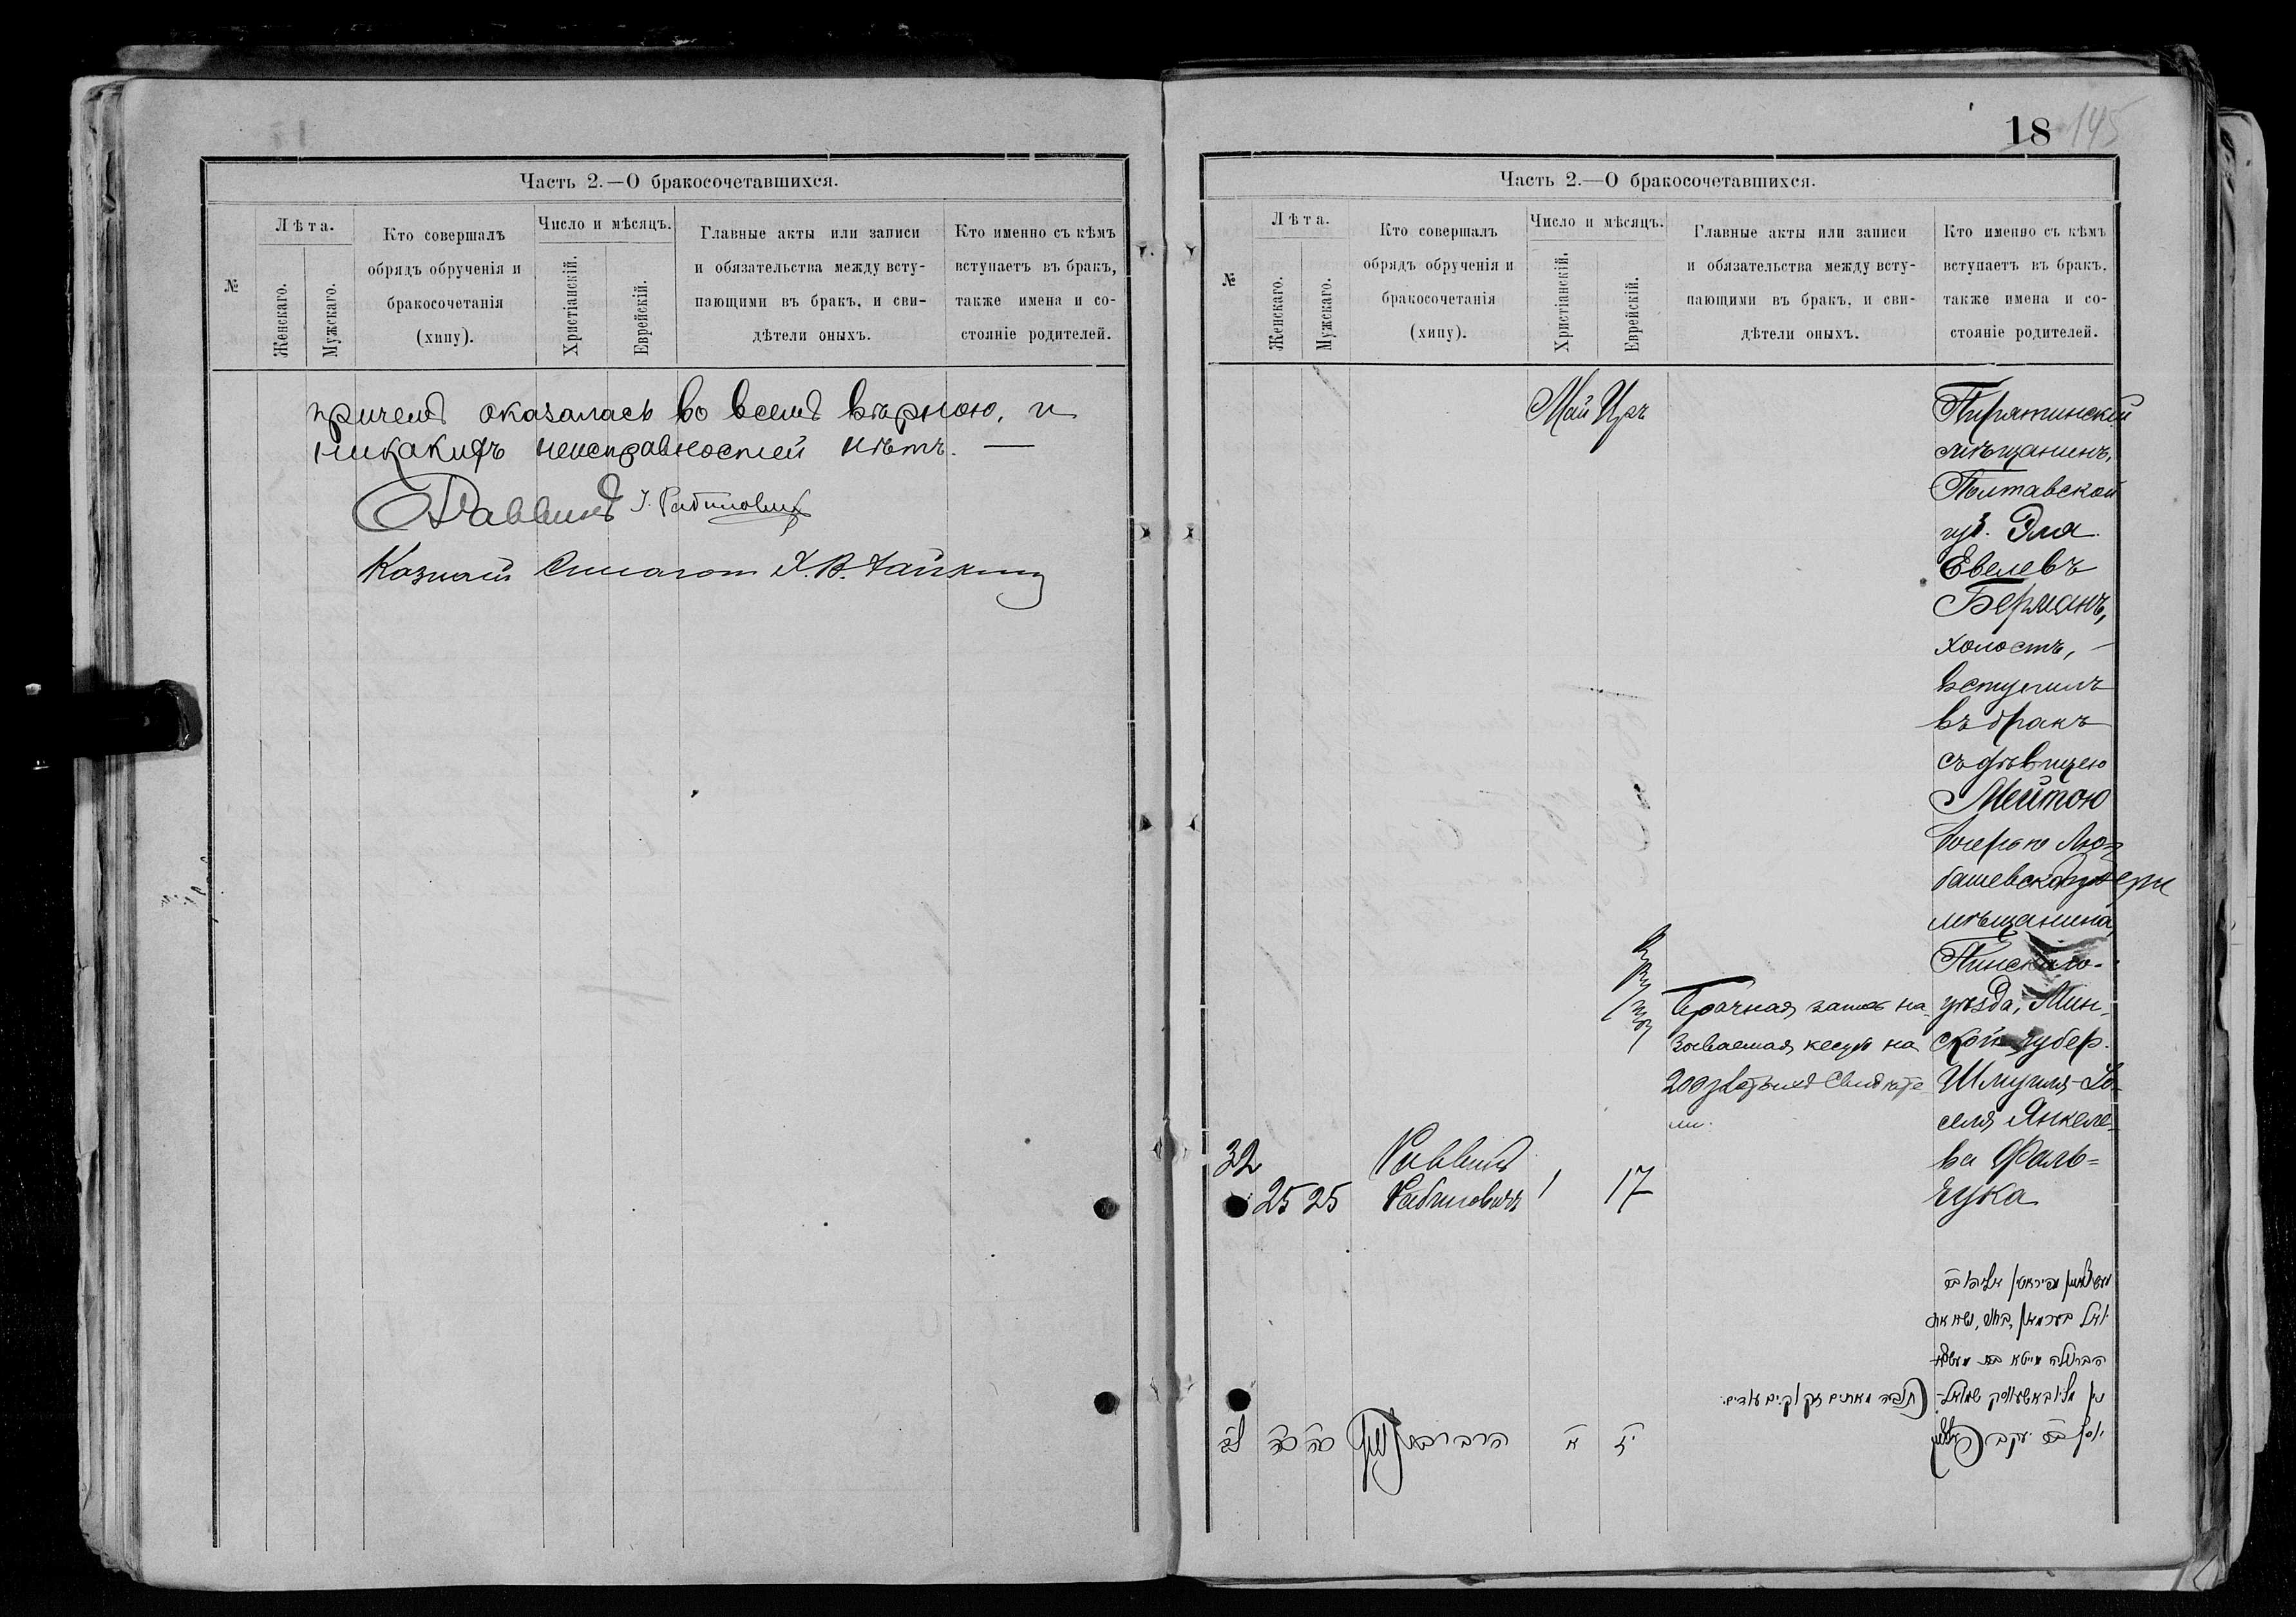 Часть 2.—О бракосочетавшихся.
№
Лѣта.
Женскаго.
Мужскаго.
Кто совершалъ
обрядъ обрученія и
бракосочетанія
(хипу).
Число и мѣсяцъ.
Христіанскій.
Еврейскій.
Главные акты или записи
и обязательства между всту-
пающими въ бракъ, и сви-
дѣтели оныхъ.
Кто именно съ кѣмъ
вступаетъ въ бракъ,
также имена и со-
стояніе родителей.
причемъ оказалась во всемъ вѣрною, и
никакихъ неисправностей нѣтъ. —
Раввинъ І. Рабиновичъ
18 145
Часть 2.—О бракосочетавшихся.
№
Лѣта.
Женскаго.
Мужскаго.
Кто совершалъ
обрядъ обрученія и
бракосочетанія
(хипу).
Число и мѣсяцъ.
Христіанскій.
Еврейскій.
Главные акты или записи
и обязательства между всту-
пающими въ бракъ, и сви-
дѣтели оныхъ.
Кто именно съ кѣмъ
вступаетъ въ бракъ,
также имена и со-
стояніе родителей.
32
25 25
Раввинъ
Рабиновичъ
Май Ияръ
1 17
Брачная запись на-
зываемая кесубо на
200 злотыхъ Свидѣте
ли.
Пирятинскій
мѣщанинъ,
Полтавской
губ. Эля
Евелевъ
Берманъ,
холостъ, —
вступилъ
въ бракъ
съ дѣвицею
Мейтою
дочерью Лю-
башевского
мѣщанина,
Пинскаго
уѣзда, Мин-
ской губер.
Шмуиля-Іо-
селя Янкеле-
ва Фаль-
чука
לב
כה
כה
הרב
א
יז